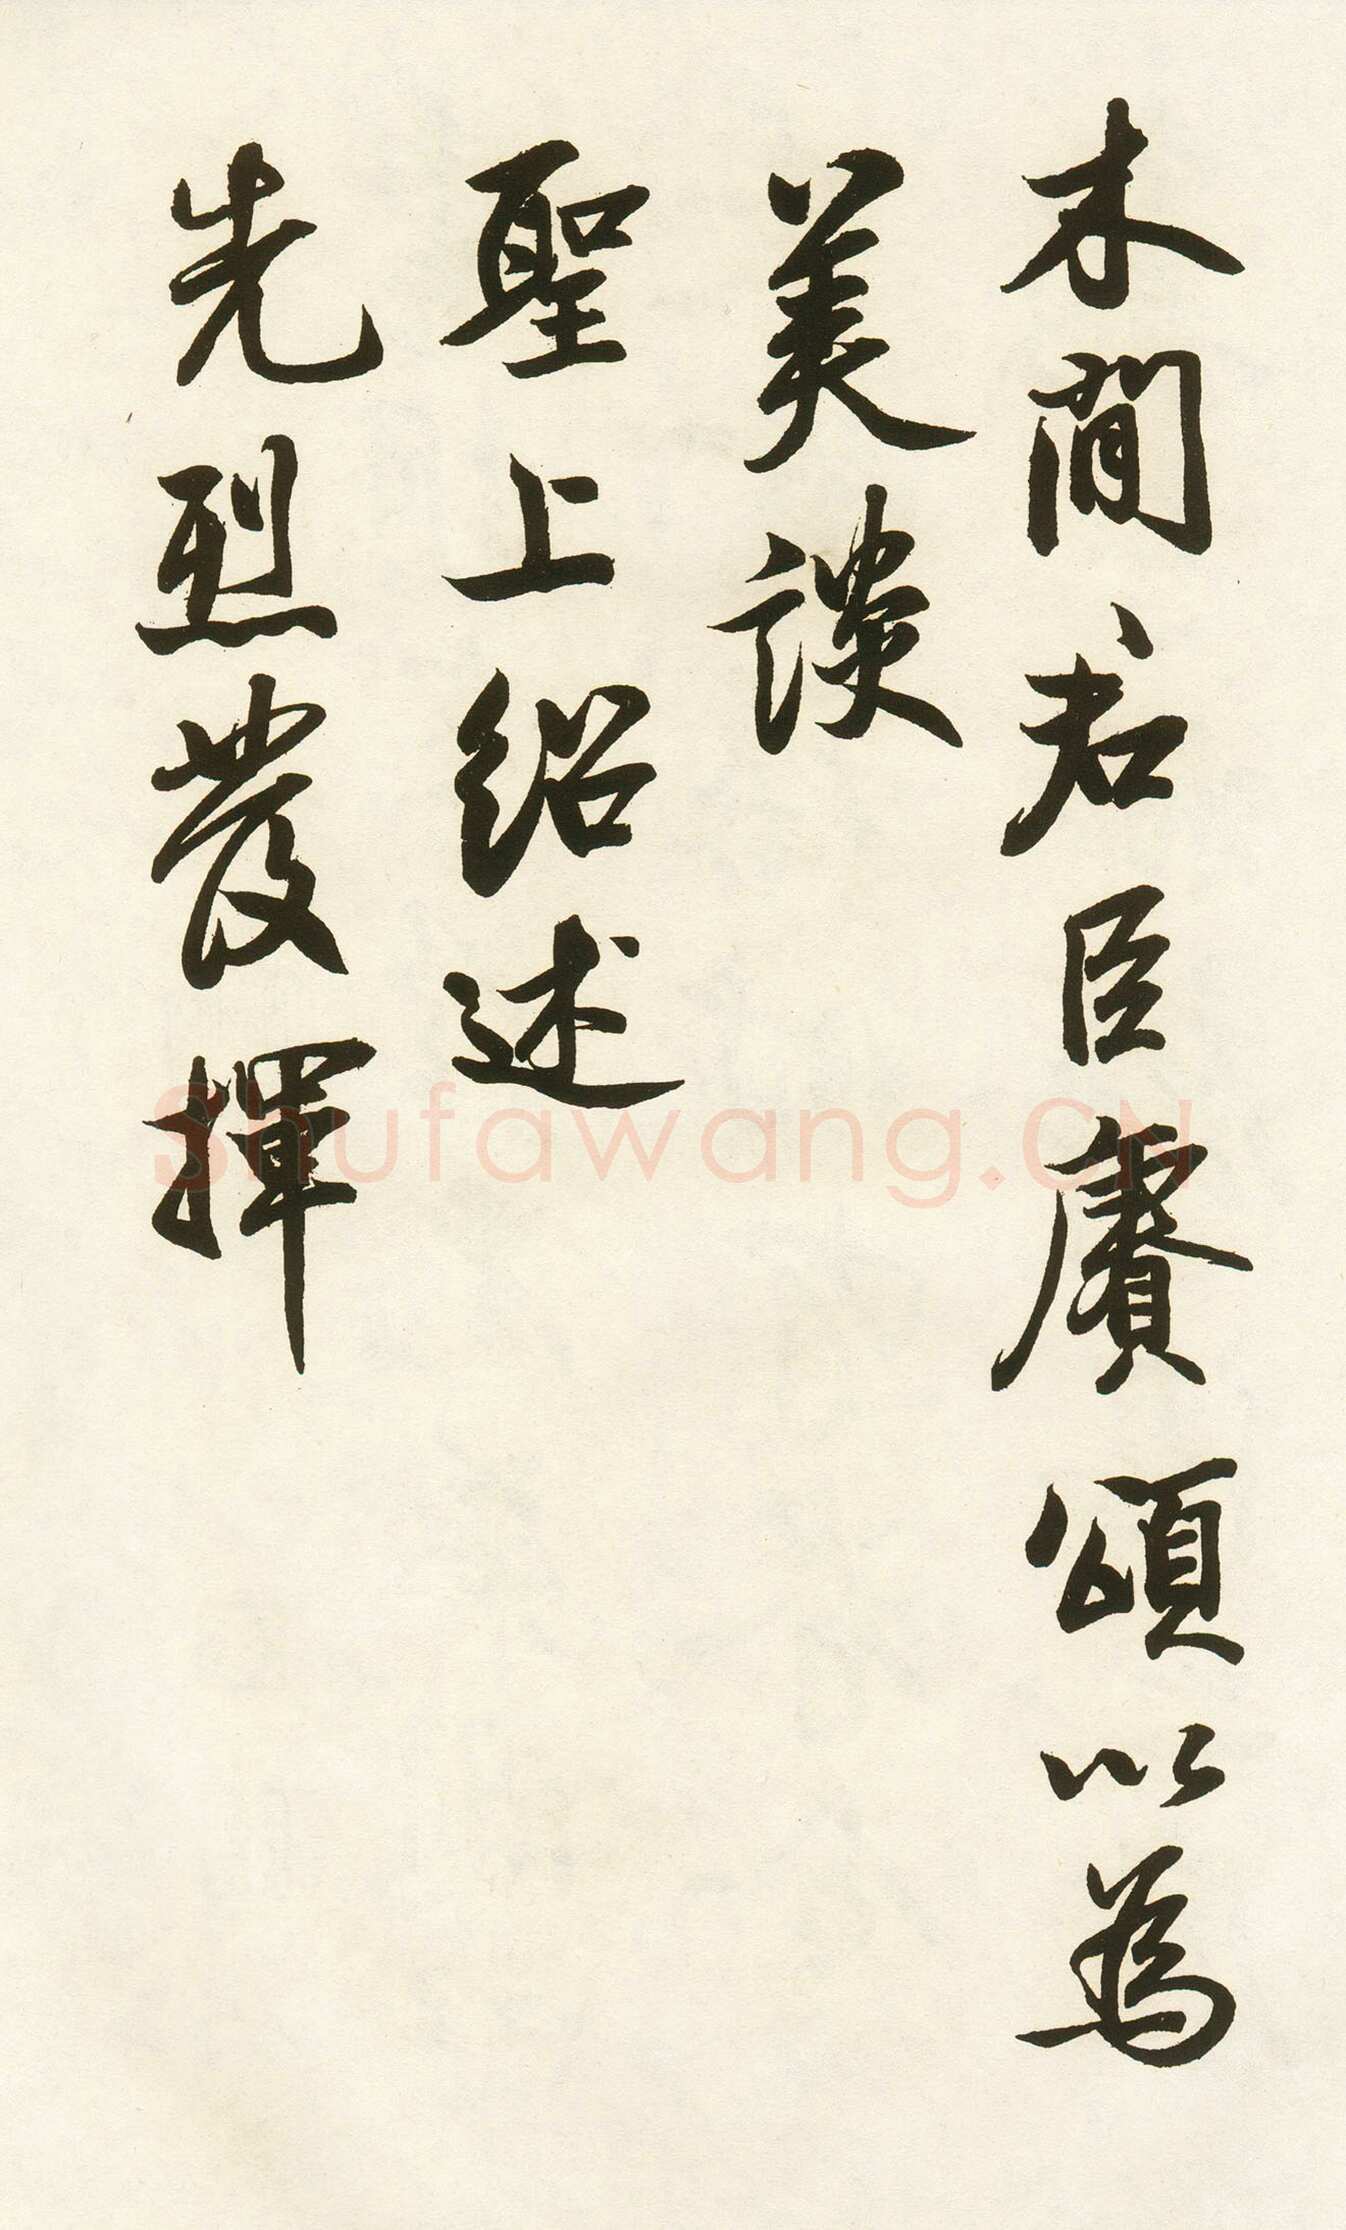 木間君臣賡頌以為
美談
聖上紹述
先烈發揮
Shufawang.CN